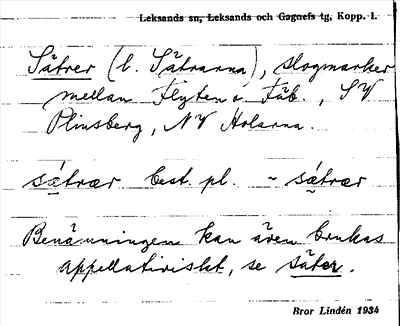 Leksands sn, Leksands och Gagnefs tg, Kopp. l.
Sätrer (l. Sätrarna), slogmarker
mellan Flyten o. Fäb., SV
Plinsberg, NV Holarna.
sǽtrær best. pl. ~ sǽtrær
Benämningen kan även brukas
appellativiskt, se säter.
Bror Lindén 1934